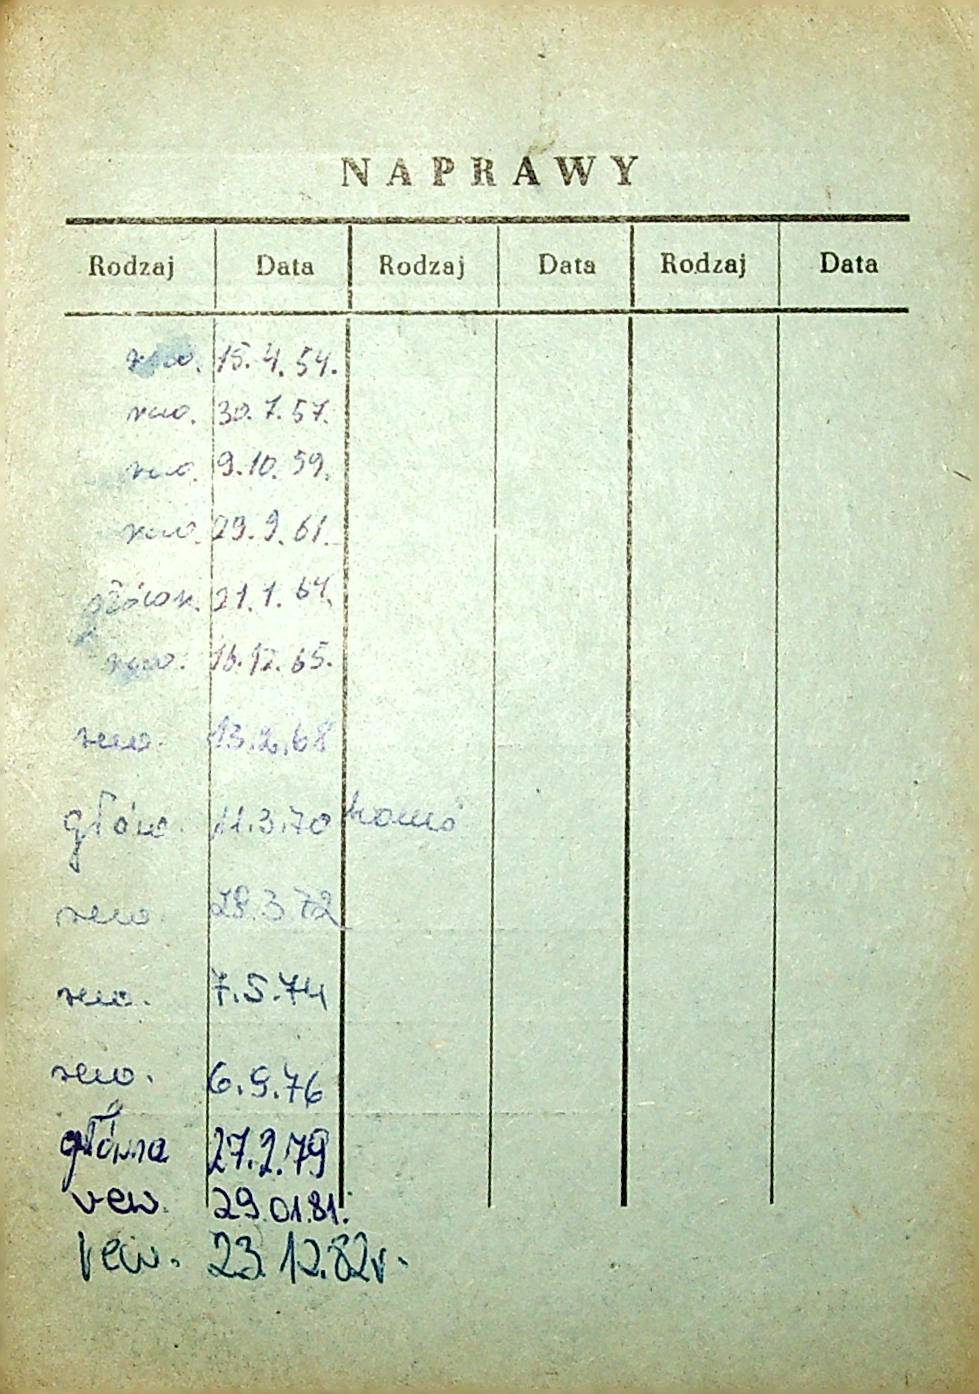 NAPRAWY
Rodzaj Data Rodzaj Data Rodzaj Data
rew. 15.4.54.
rew. 30.7.57.
rew. 9.10.59.
rew. 29.9.61.
główn. 21.1.64.
rew. 16.12.65.
rew. 13.2.68
główn. 11.3.70
rew. 28.3.72
rew. 7.5.74
rew. 6.9.76
główna 27.2.79
rew. 29.01.81.
rew. 23.12.82r.